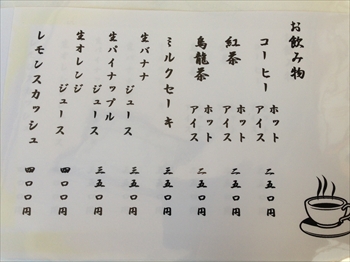 お飲み物
コーヒー ホット アイス 二五〇円
紅茶 ホット アイス 二五〇円
烏龍茶 ホット アイス 二五〇円
ミルクセーキ 三五〇円
生バナナ ジュース 三五〇円
生パイナップル ジュース 三五〇円
生オレンジ ジュース 四〇〇円
レモンスカッシュ 四〇〇円